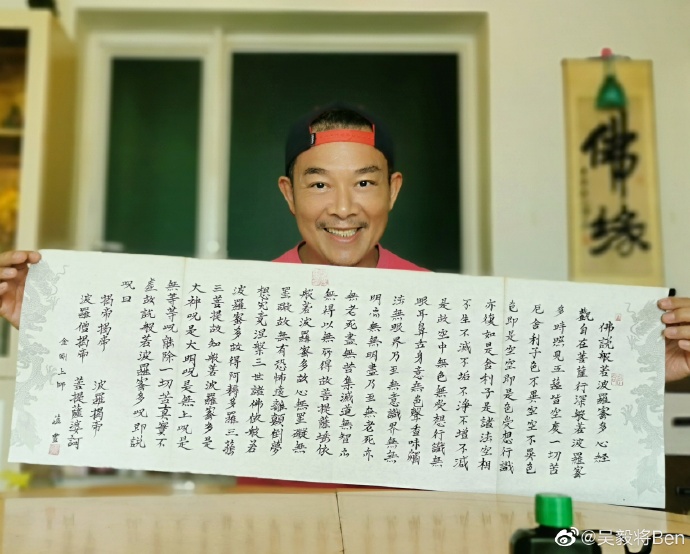 佛說般若波羅蜜多心經
觀自在菩薩行深般若波羅蜜
多時照見五蘊皆空度一切苦
厄舍利子色不異空空不異色
色即是空空即是色受想行識
亦復如是舍利子是諸法空相
不生不滅不垢不淨不增不減
是故空中無色無受想行識無
眼耳鼻舌身意無色聲香味觸
法無眼界乃至無意識界無無
明亦無無明盡乃至無老死亦
無老死盡無苦集滅道無智亦
無得以無所得故菩提薩埵依
般若波羅蜜多故心無罣礙無
罣礙故無有恐怖遠離顛倒夢
想究竟涅槃三世諸佛依般若
波羅蜜多故得阿耨多羅三藐
三菩提故知般若波羅蜜多是
大神呪是大明呪是無上呪是
無等等呪能除一切苦真實不
虛故說般若波羅蜜多呪即說
呪曰
揭帝揭帝 波羅揭帝
波羅僧揭帝 菩提薩婆訶
金剛上師
佛缘
@吴毅将Ben